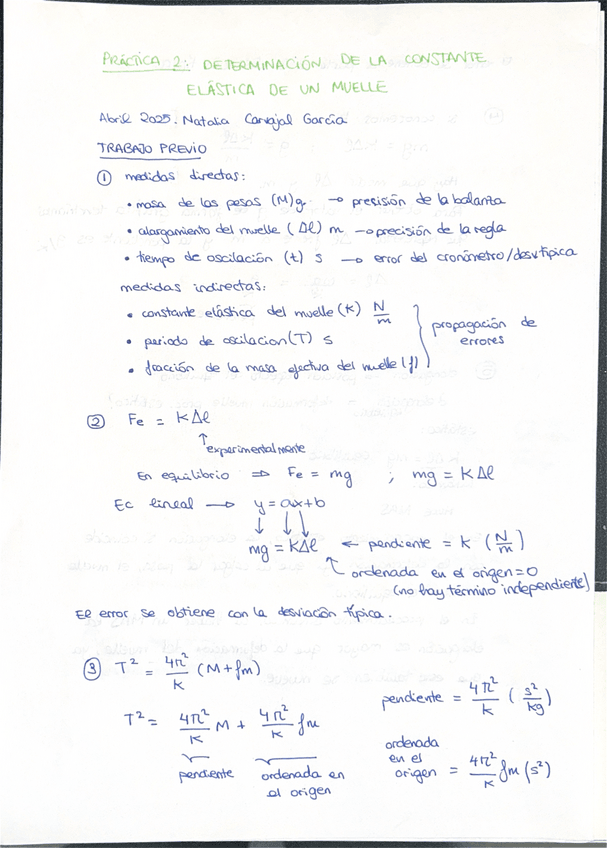 PRÁCTICA 2: DETERMINACIÓN DE LA CONSTANTE
ELÁSTICA DE UN MUELLE
Abril 2025. Natalia Carvajal García
TRABAJO PREVIO
① medidas directas:
• masa de las pesas (M)g → precisión de la balanza
• alargamiento del muelle (Δl) m → precisión de la regla
• tiempo de oscilación (t) s → error del cronómetro/desv típica
medidas indirectas:
• constante elástica del muelle (K) N/m
• periodo de oscilacion (T) s
• fracción de la masa efectiva del muelle (f)
} propagación de errores
② Fe = KΔl
↑ experimentalmente
En equilibrio ⇒ Fe = mg ; mg = KΔl
Ec lineal → y = ax+b
↓ ↓ ↓
mg = KΔl ← pendiente = K (N/m)
↖ ordenada en el origen = 0
(no hay término independiente)
El error se obtiene con la desviación típica.
③ T² = 4π²/K (M + fm)
T² = 4π²/K M + 4π²/K fm
pendiente ordenada en el origen
pendiente = 4π²/K (s²/kg)
ordenada en el origen = 4π²/K fm (s²)